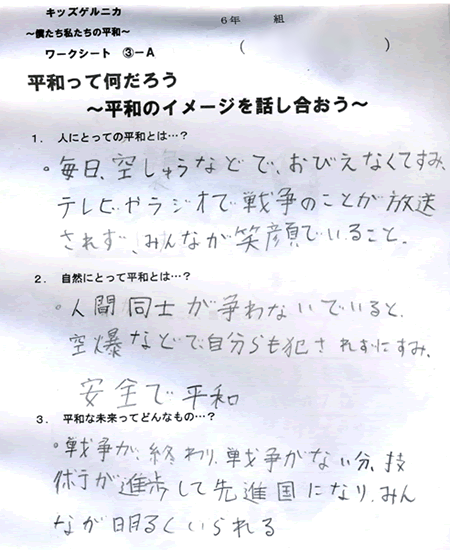 キッズゲルニカ
6年 組
～僕たち私たちの平和～
ワークシート ③－A
( )
平和って何だろう
～平和のイメージを話し合おう～
1．人にとっての平和とは…？
。毎日、空しゅうなどで、おびえなくてすみ、
テレビやラジオで戦争のことが放送
されず、みんなが笑顔でいること。
2．自然にとって平和とは…？
。人間同士が争わないでいると、
空爆などで、自分らも犯されずにすみ、
安全で平和
3．平和な未来ってどんなもの…？
。戦争が、終わり、戦争がない分、技
術が進歩して先進国になり、みん
なが明るくいられる